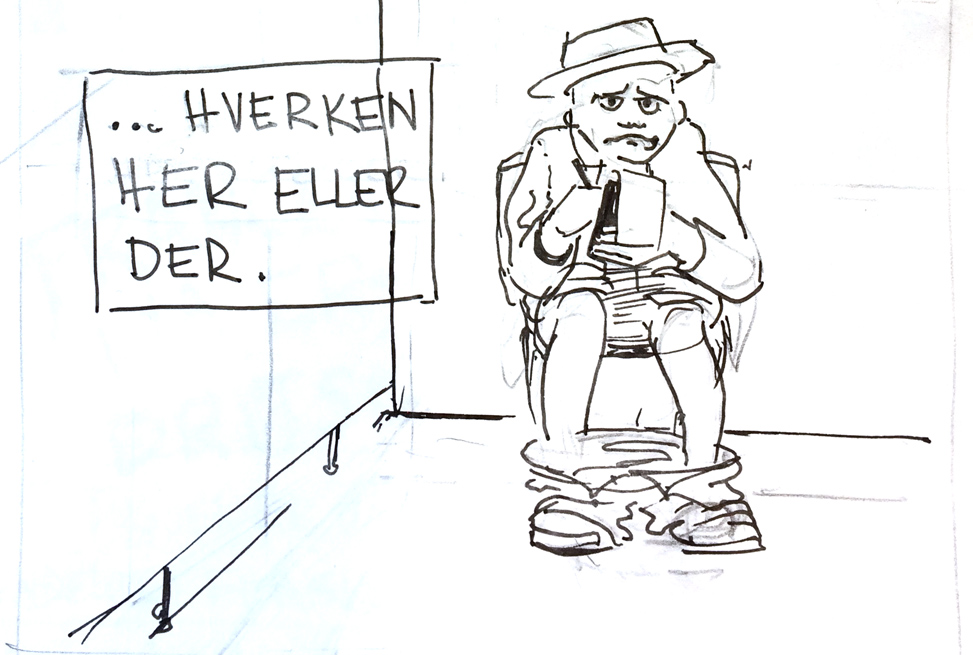 ... HVERKEN
HER ELLER
DER.